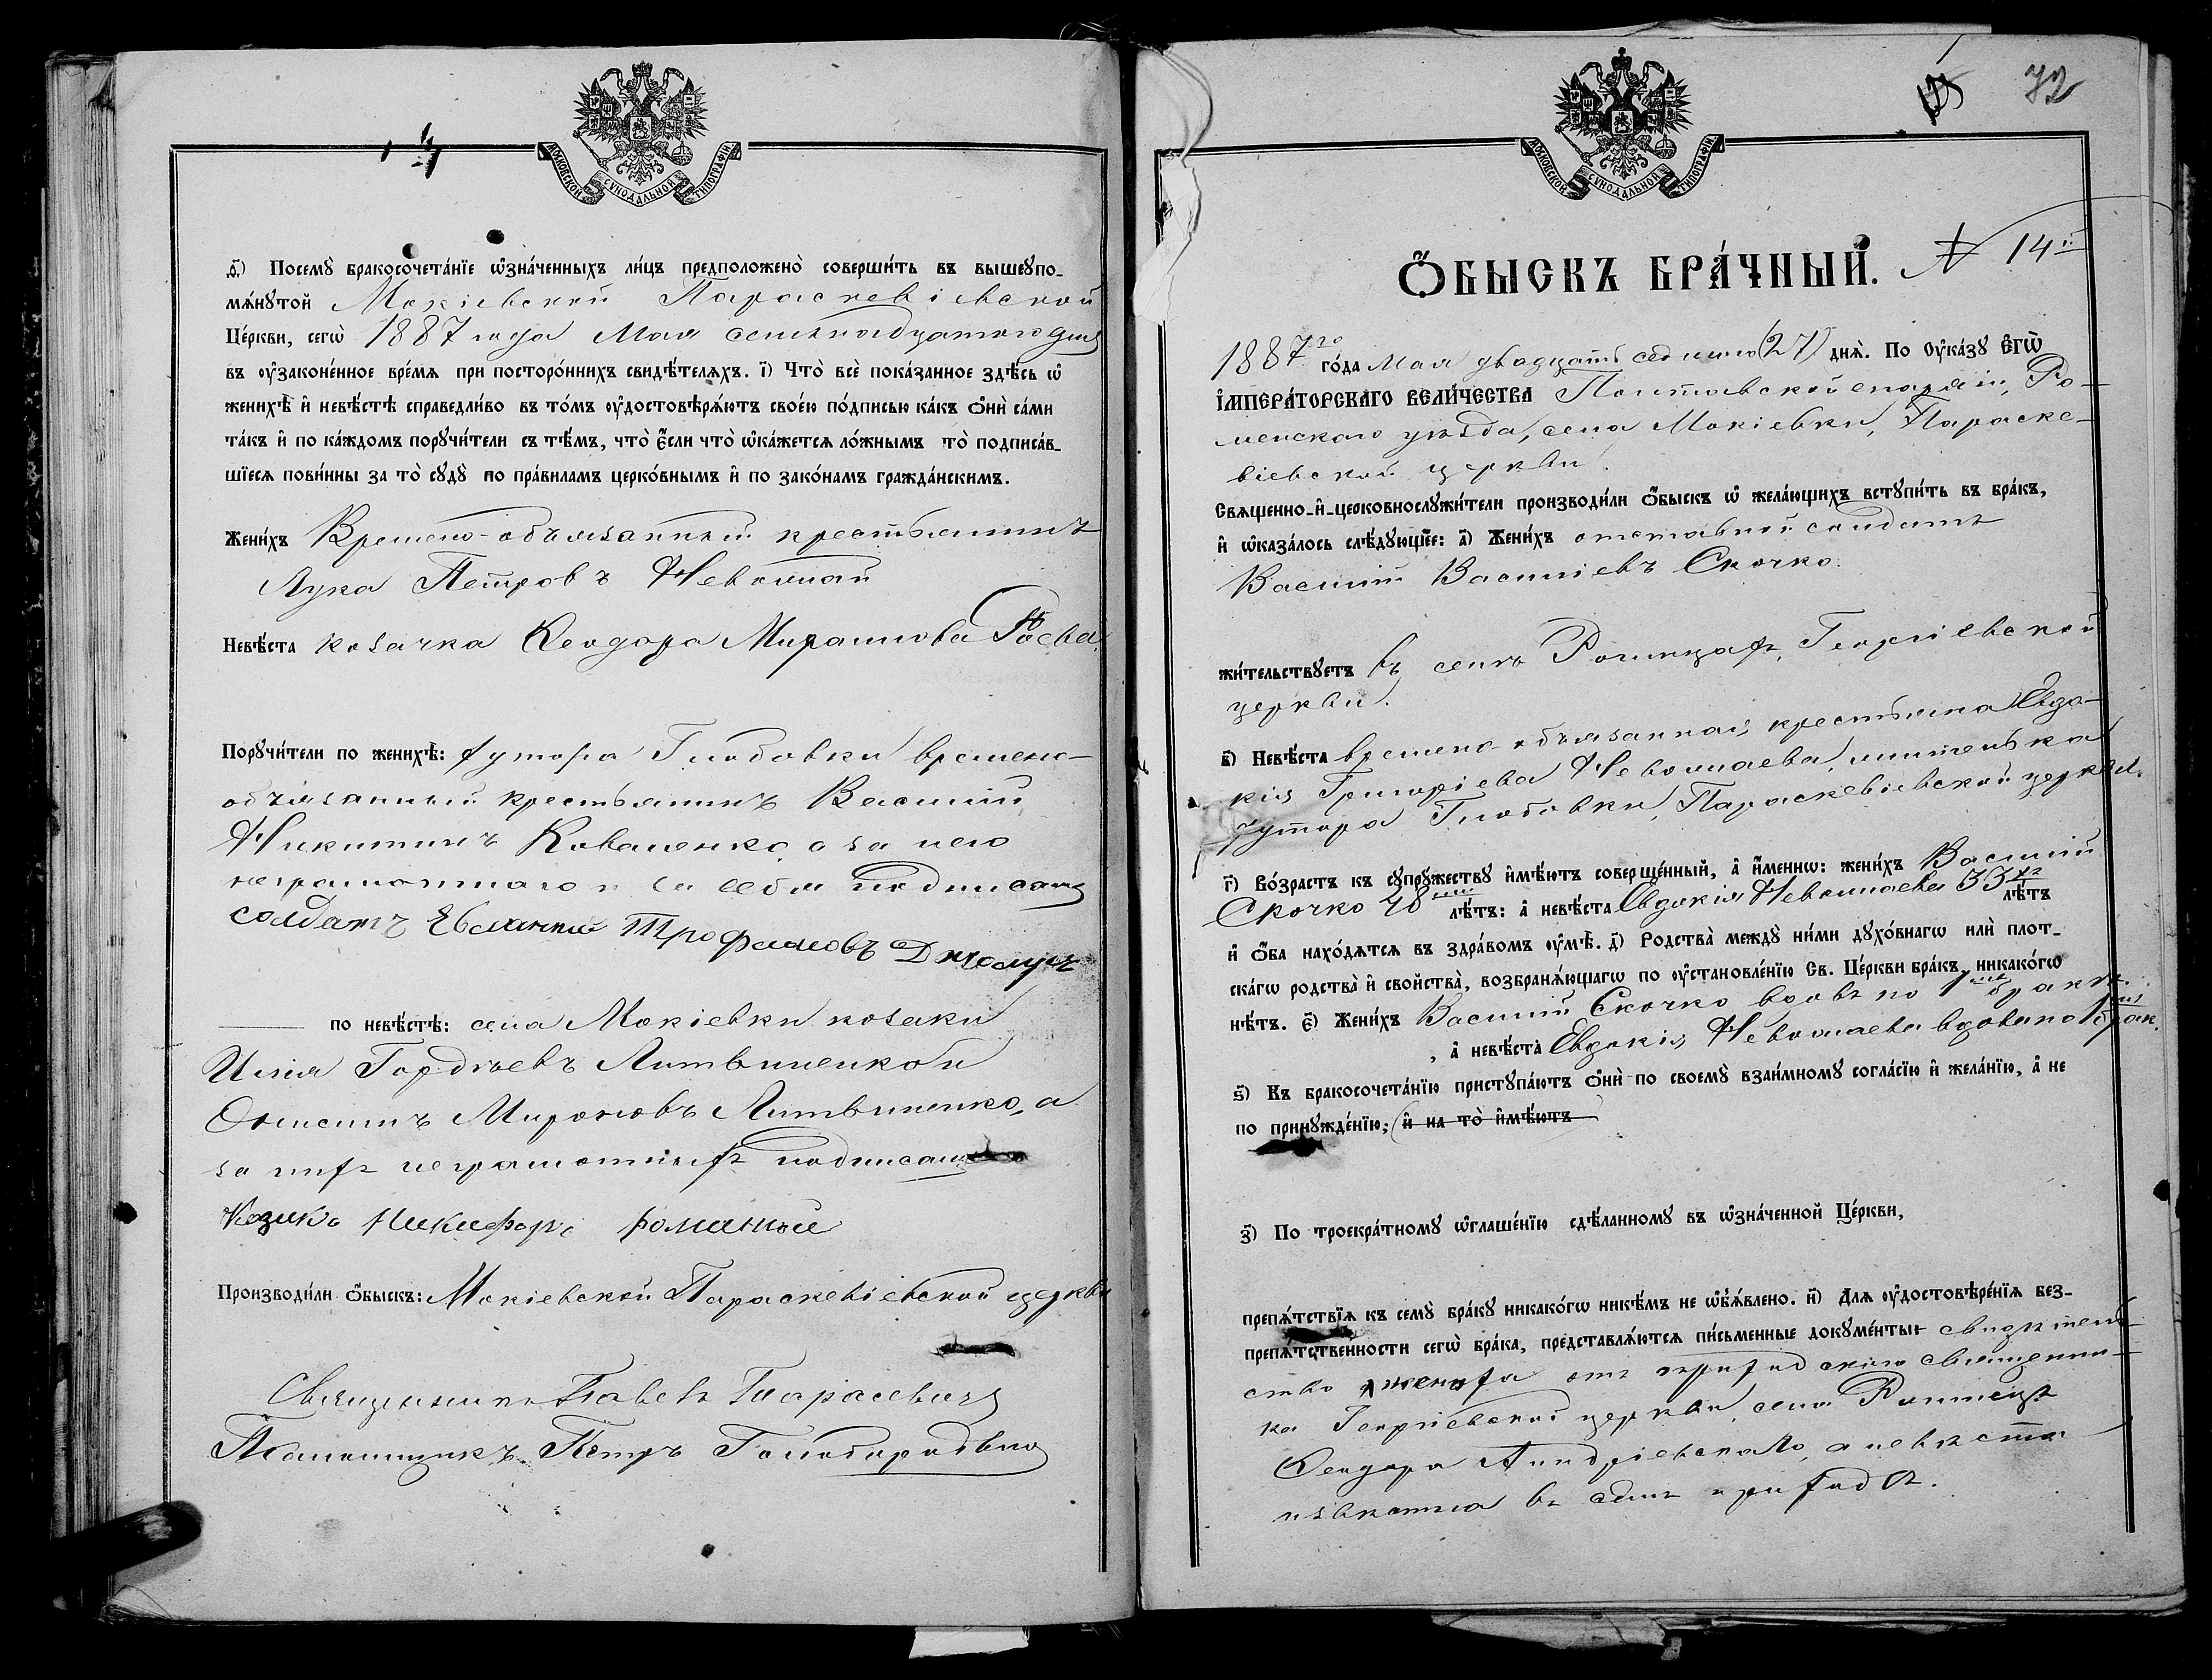 МОСКОВСКОЙ СУНОДАЛЬНОЙ ТИПОГРАФІИ
ѳ҃) Посемꙋ̀ бракосочета́нїе ѡ҆зна́ченныхъ ли́цъ предположено̀ соверши́ть въ вышеꙋпо-
мѧ́нꙋтой Мокіевской Параскевіевской
Це́ркви, сегѡ̀ 1887 года Мая семьнадцатого дня
въ ᲂу҆законе́нное вре́мѧ при посторо́ннихъ свидѣ́телѧхъ. і҃) Что̀ всѐ пока́занное здѣ́сь ѡ҆
женихѣ̀ и҆ невѣ́стѣ справедли́во въ то́мъ ᲂу҆достовѣрѧ́ютъ свое́ю по́дписью ка́къ ѻ҆нѝ са́ми
та́къ и҆ по ка́ждомъ порꙋчи́тели съ тѣ́мъ, что̀ є҆́сли что̀ ѡ҆ка́жетсѧ ло́жнымъ то̀ подписа́в-
шїесѧ пови́нны за то̀ сꙋдꙋ̀ по пра́виламъ церко́внымъ и҆ по зако́намъ гражда́нскимъ.
Жени́хъ Времено-обязанный крестьянинъ
Лука Петровъ Неволмай
Невѣ́ста козачка Ѳеодора Мирашова
Порꙋчи́тели по женихѣ̀: хутора Глобовки времено-
обязанный крестьянинъ Василій
Никитинъ Коваленко, а за него
неграмотного и за себя подписался
солдатъ Евлампій Трофимовъ
по невѣ́стѣ: села Мокіевки козаки
Илія Гордѣевъ Литвиненко и
Онисимъ Мироновъ Литвиненко, а
за нихъ неграмотныхъ подписался
Козакъ Никифоръ Романый
Производи́ли ѻ҆́быскъ: Мокіевской Параскевіевской церкви
Священникъ Павелъ Тарасевичъ
Псаломщикъ Петръ Голобородько
72
МОСКОВСКОЙ СУНОДАЛЬНОЙ ТИПОГРАФІИ
Ѻ҆́БЫСКЪ БРА́ЧНЫЙ. № 14й
1887го го́да Мая двадцать седьмаго (27) днѧ̀. По Оу҆ка́зꙋ Є҆гѡ̀
І҆МПЕРА́ТОРСКАГО ВЕЛИ́ЧЕСТВА Полтавской епархіи, Ро-
менскаго уѣзда, села Мокіевки, Параске-
віевской церкви.
Свѧщенно-и҆-церковнослꙋжи́тели производи́ли ѻ҆́быскъ ѡ҆ жела́ющихъ встꙋпи́ть въ бра́къ,
и҆ ѡ҆каза́лось слѣ́дꙋющее: а҃) Жени́хъ отставной солдатъ
Василій Василіевъ Скочко.
жи́тельствꙋетъ въ селѣ Рогинцахъ, Георгіевской
церкви.
в҃) Невѣ́ста времено-обязанная крестьянка Евдо-
кія Григоріева Неволмаева, жителька
хутора Глобовки, Параскевіевской церкви.
г҃) Во́зрастъ къ сꙋпрꙋ́жествꙋ и҆мѣ́ютъ соверше́нный, а҆ и҆́меннѡ: жени́хъ Василій
Скочко 48 лѣ́тъ: а҆ невѣ́ста Евдокія Неволмаева 33 лѣ́тъ
и҆ ѻ҆́ба нахо́дѧтсѧ въ здра́вомъ ᲂу҆мѣ̀. д҃) Родства̀ междꙋ̀ ни́ми дꙋхо́внагѡ и҆лѝ плот-
ска́гѡ родства̀ и҆ свойства̀, возбранѧ́ющагѡ по ᲂу҆становле́нїю Св. Це́ркви бра́къ, никако́гѡ
нѣ́тъ. є҃) Жени́хъ Василій Скочко вдовъ по 1мъ бракѣ.
, а҆ невѣ́ста Евдокія Неволмаева вдова по 1 брак.
ѕ҃) Къ бракосочета́нїю пристꙋпа́ютъ ѻ҆нѝ по своемꙋ̀ взаи́мномꙋ согла́сїю и҆ жела́нїю, а҆ не
по принꙋжде́нїю; (и҆ на то̀ и҆мѣ́ютъ
з҃) По троекра́тномꙋ ѡ҆глаше́нїю сдѣ́ланномꙋ въ ѡ҆зна́ченной Це́ркви,
препѧ́тствїѧ къ семꙋ̀ бра́кꙋ никако́гѡ никѣ́мъ не ѡ҆б̾ѧ́влено. и҃) Длѧ ᲂу҆достовѣре́нїѧ без-
препѧ́тственности сегѡ̀ бра́ка, представлѧ́ютсѧ пи́сьменные докꙋме́нты: свидѣтель-
ство жениха отъ приходского священни-
ка Георгіевской церкви, села Рогинецъ
Ѳеодора Андріевскаго, а невѣста
извѣстна въ семъ приходѣ.